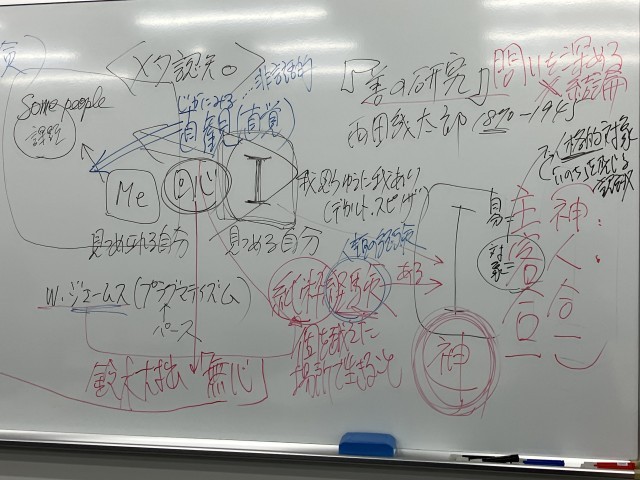 <メタ認知。
Some people
課題
じかにみる
直観(直覚)
非言語的
『善の研究』
西田幾太郎(1870-194
問いを深める
×結論
Me
回心
I
我思うゆえに我あり
(デカルト、スピノザ
見つめられる自分
見つめる自分
人格的対象
W.ジェームス(プラグマティズム)
パース
純粋経験
ある
主客合一
神人合一
対象=
神
鈴木大拙「無心」
個を越えた
場所で生きること